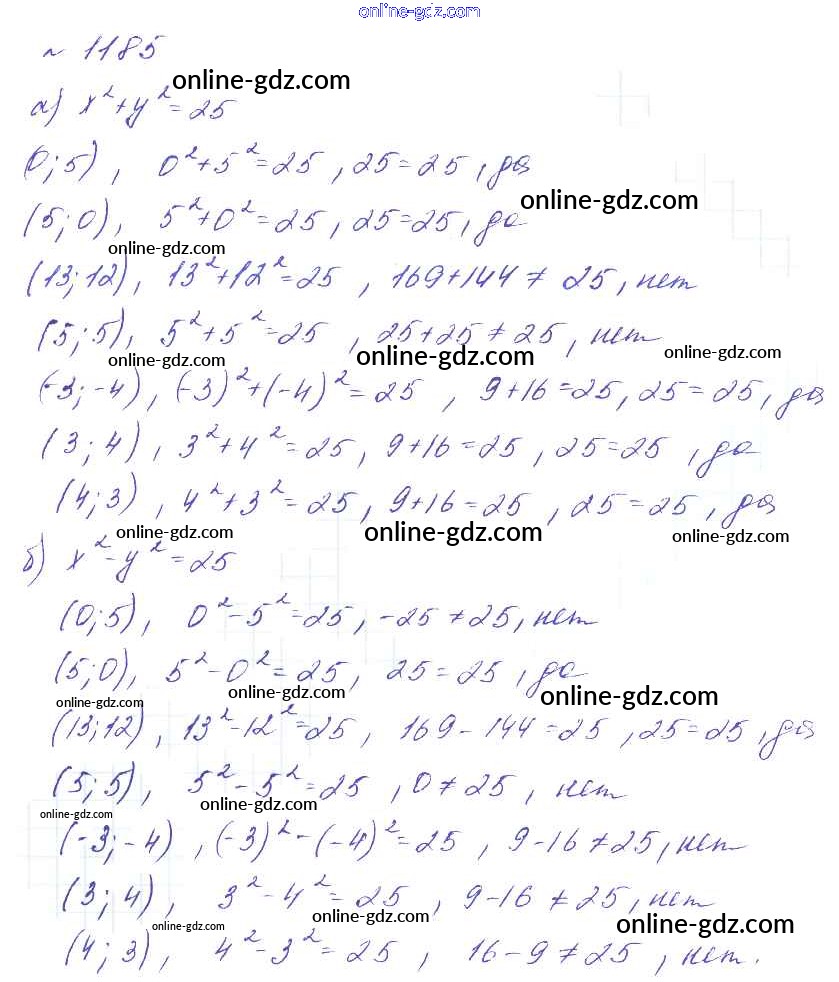 online-gdz.com
№ 1185
online-gdz.com
а) x²+y²=25
(0;5), 0²+5²=25, 25=25, да
online-gdz.com
(5;0), 5²+0²=25, 25=25, да
online-gdz.com
(13;12), 13²+12²=25, 169+144≠25, нет
(5;5), 5²+5²=25, 25+25≠25, нет
online-gdz.com online-gdz.com online-gdz.com
(-3;-4), (-3)²+(-4)²=25, 9+16=25, 25=25, да
(3;4), 3²+4²=25, 9+16=25, 25=25, да
(4;3), 4²+3²=25, 9+16=25, 25=25, да
online-gdz.com online-gdz.com online-gdz.com
б) x²-y²=25
(0;5), 0²-5²=25, -25≠25, нет
(5;0), 5²-0²=25, 25=25, да
online-gdz.com online-gdz.com online-gdz.com
(13;12), 13²-12²=25, 169-144=25, 25=25, да
(5;5), 5²-5²=25, 0≠25, нет
online-gdz.com online-gdz.com
(-3;-4), (-3)²-(-4)²=25, 9-16≠25, нет
(3;4), 3²-4²=25, 9-16≠25, нет
online-gdz.com online-gdz.com online-gdz.com
(4;3), 4²-3²=25, 16-9≠25, нет.